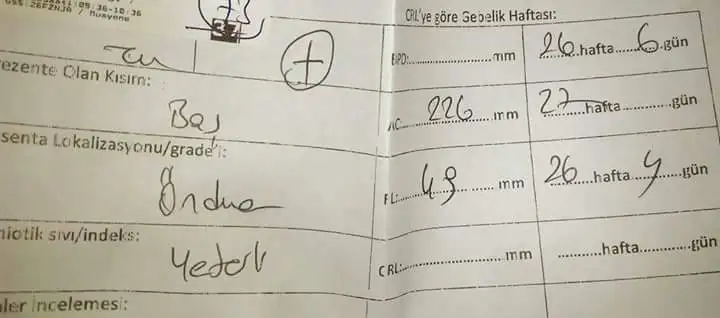 09:36-10:36
/ Muayene
CRL'ye göre Gebelik Haftası:
BPD:..............mm 26 hafta 6 gün
ezente Olan Kısım:
Baş
AC 226 mm 27 hafta..............gün
senta Lokalizasyonu/grade'i:
Önduva
FL: 49 mm 26 hafta 4 gün
niotik sıvı/indeks:
Yeterli
CRL:..............mm ..............hafta..............gün
ler İncelemesi: